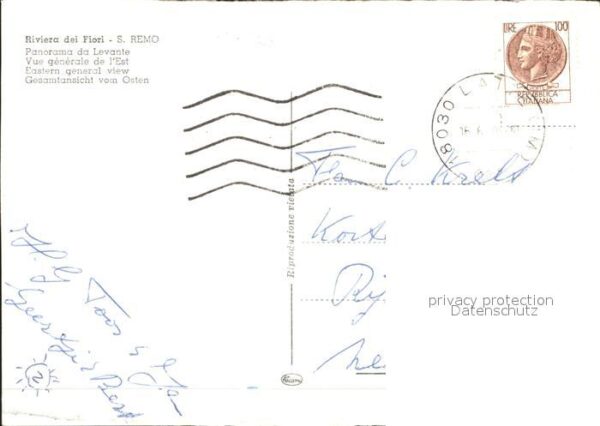 Riviera dei Fiori - S. REMO
Panorama da Levante
Vue générale de l'Est
Eastern general view
Gesamtansicht vom Osten
LIRE 100
REPUBBLICA
ITALIANA
18030 LAT
Riproduzione vietata
Fam C. Krelt
Kost
Rij
Ne
privacy protection
Datenschutz
H. G. Toos &
Geertje